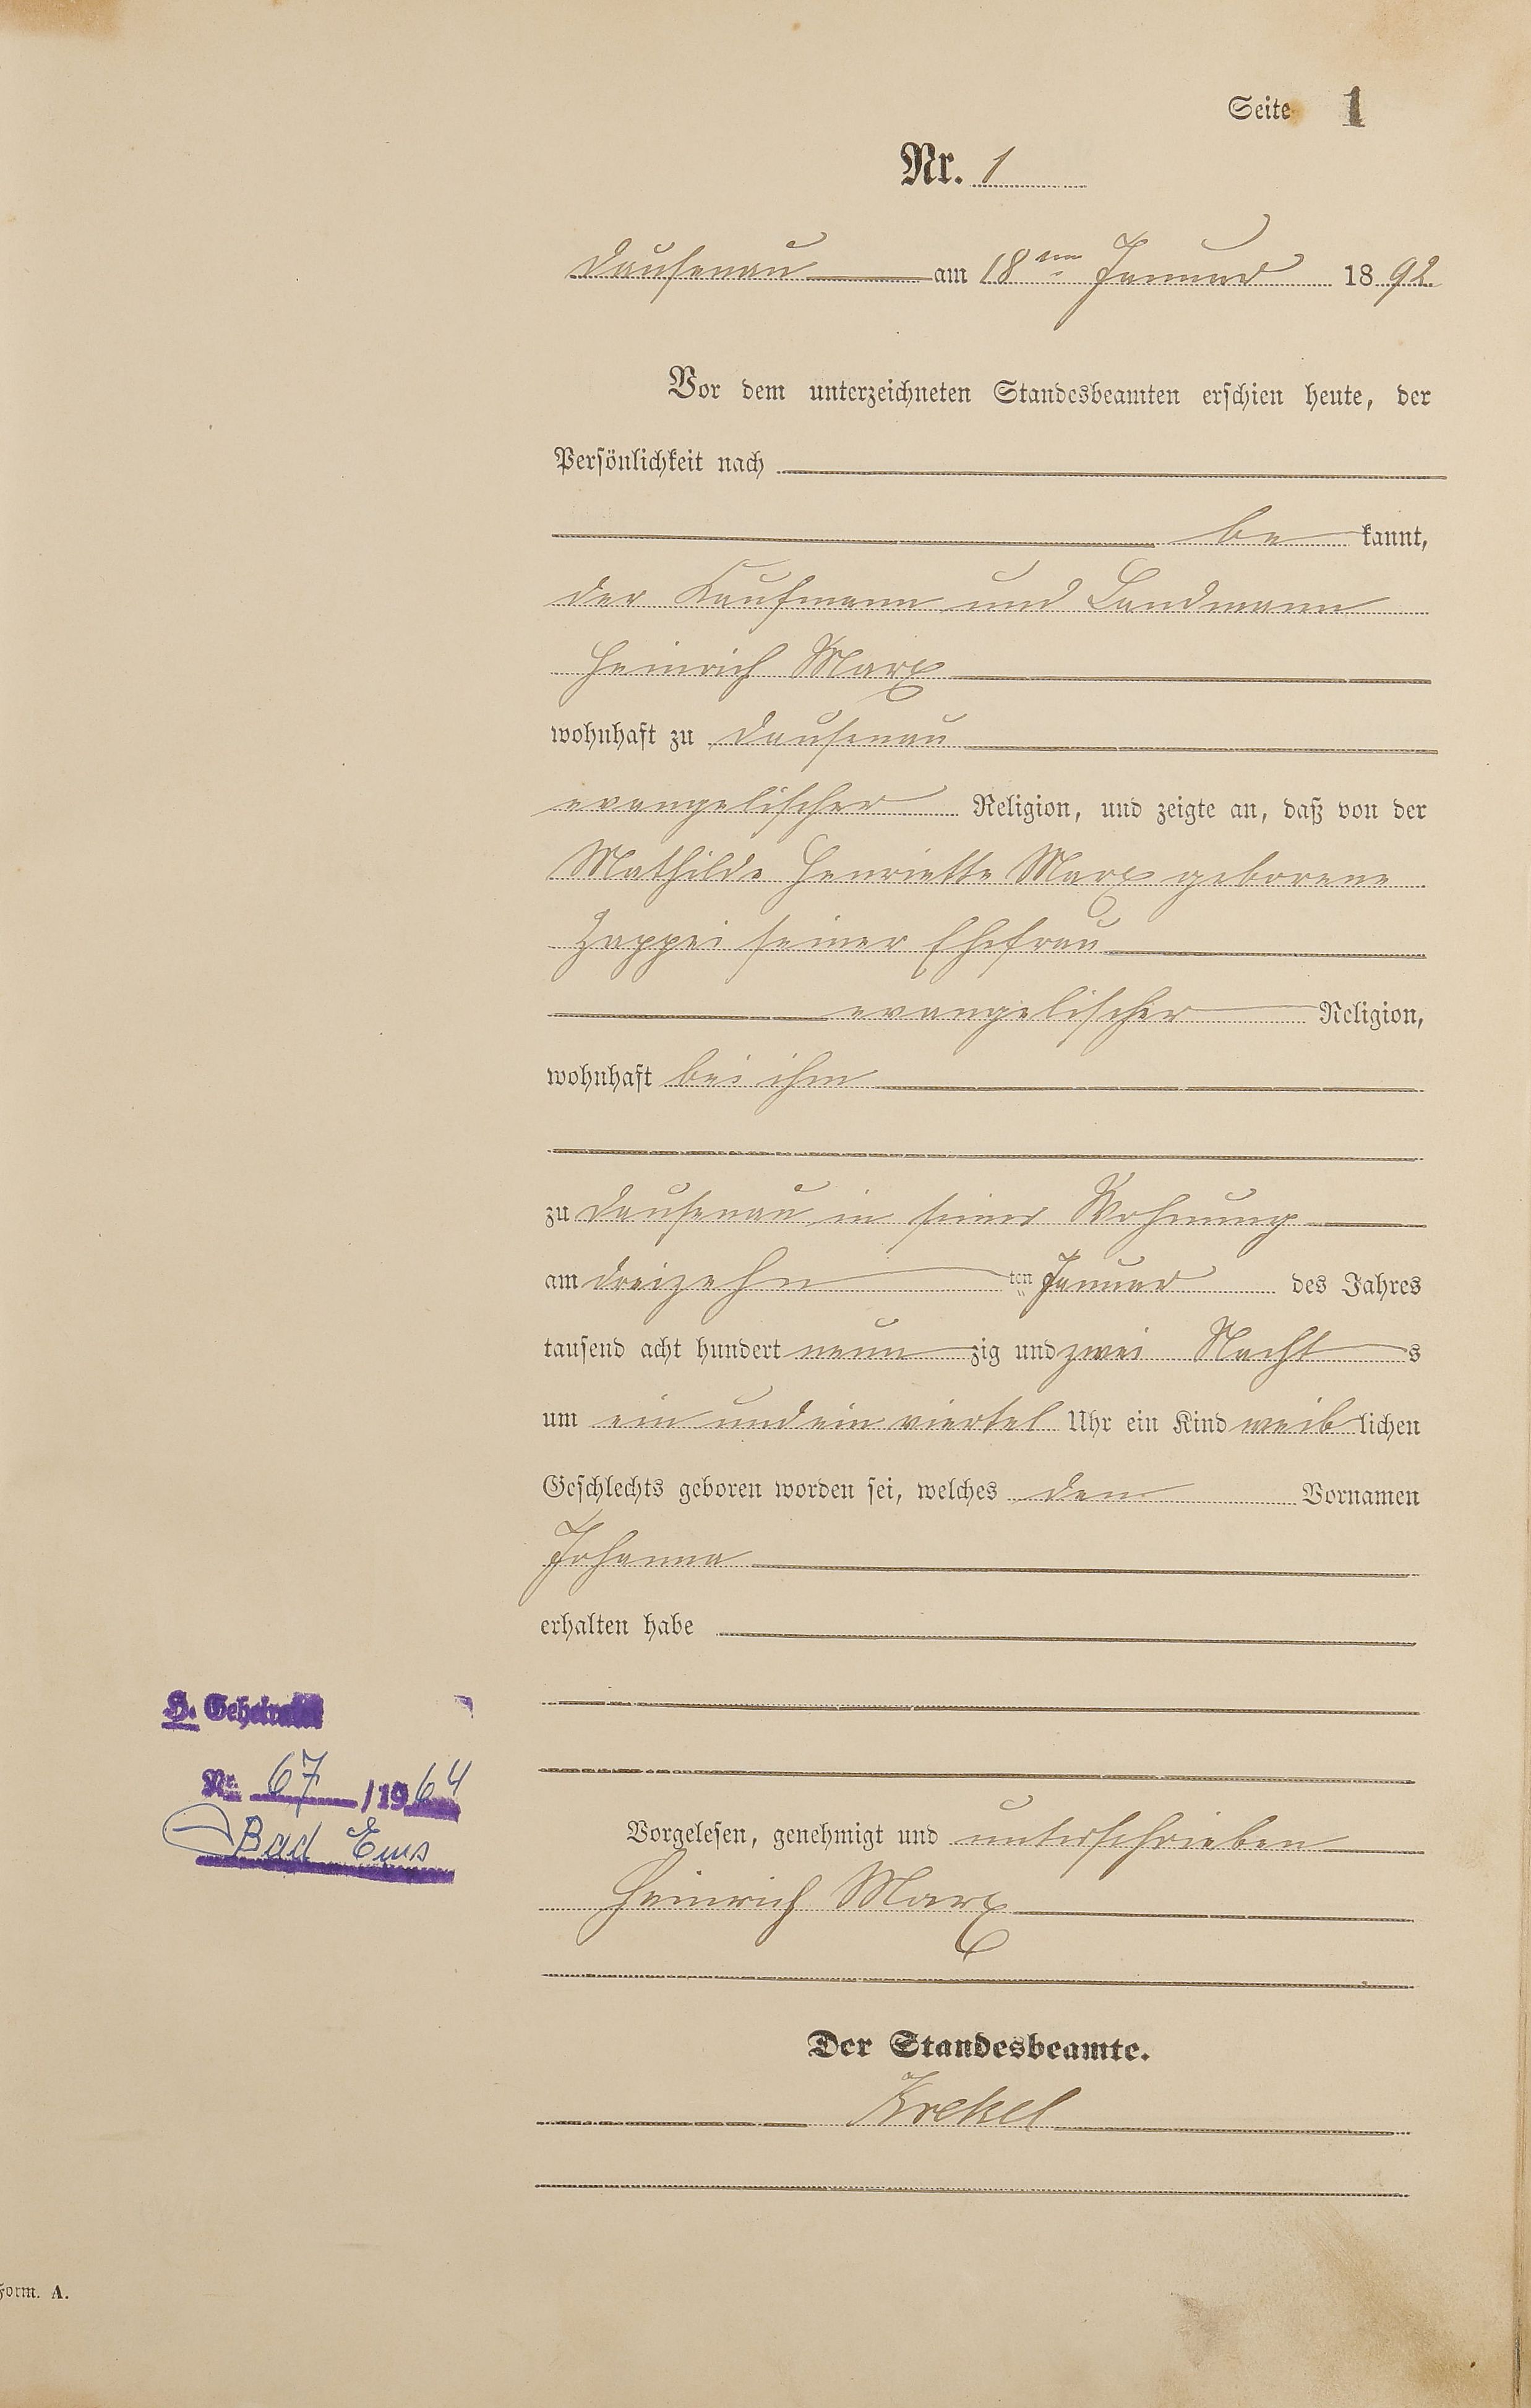 Seite 1
Nr. 1
Dausenau am 18ten Januar 1892.
Vor dem unterzeichneten Standesbeamten erschien heute, der
Persönlichkeit nach
be kannt,
der Kaufmann und Landmann
Heinrich Marx
wohnhaft zu Dausenau
evangelischer Religion, und zeigte an, daß von der
Mathilde Henriette Marx geborene
Zappei seiner Ehefrau
evangelischer Religion,
wohnhaft bei ihm
zu Dausenau in seiner Wohnung
am dreizehn ten Januar des Jahres
tausend acht hundert neun zig und zwei Nacht s
um ein und ein viertel Uhr ein Kind weib lichen
Geschlechts geboren worden sei, welches den Vornamen
Johanna
erhalten habe
Nr. 67 /1964
Bad Ems
Vorgelesen, genehmigt und unterschrieben
Heinrich Marx
Der Standesbeamte.
Krekel
Form. A.